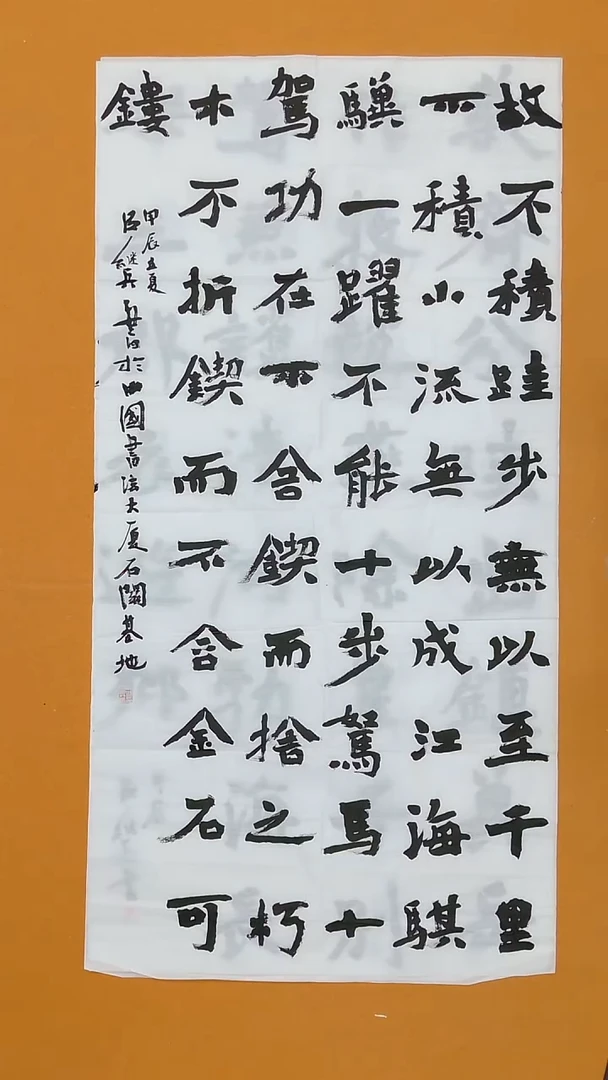 故不積跬步無以至千里
不積小流無以成江海騏
驥一躍不能十步駑馬十
駕功在不舍鍥而捨之朽
木不折鍥而不舍金石可
鏤
甲辰立夏
兵書於國書法大厦石基地